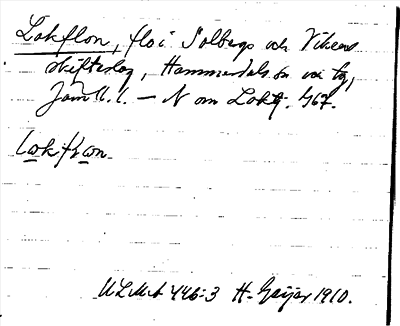 Lakflon, flo i Solbergs och Vikens
skifteslag, Hammerdals sn och tg,
Jämtl. l. — N om Lakt. 467.
lakflon.
ULMA 446:3 H. Geijer 1910.